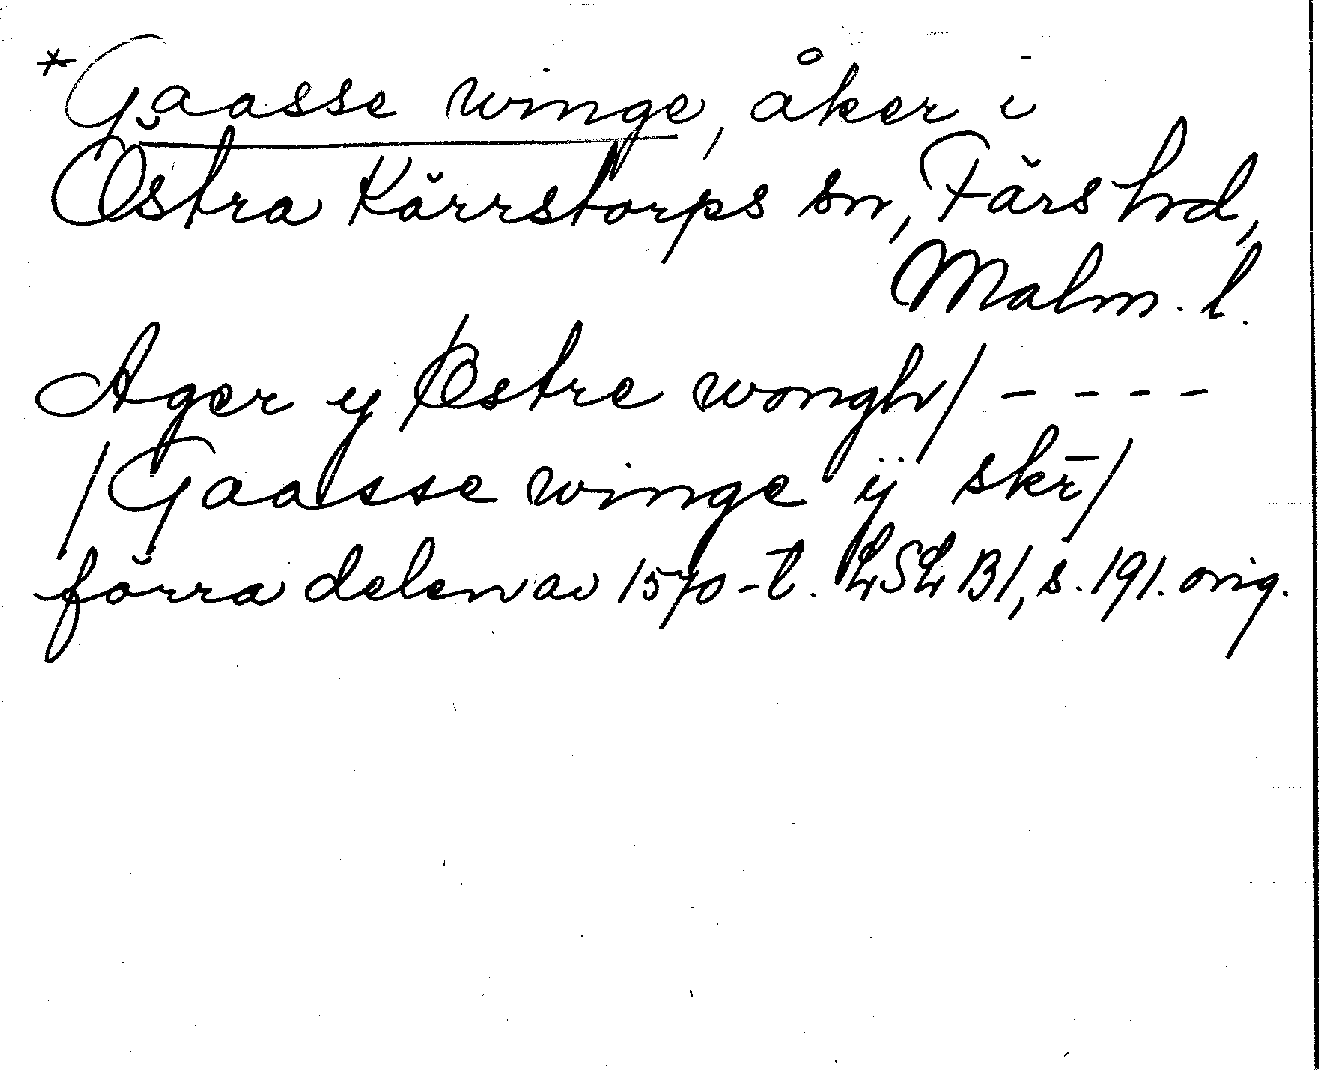 *Gaasse winge, åker i
Östra Kärrstorps sn, Färs hd,
Malm. l.
Ager y Østre wongh/ - - - -
/Gaasse winge ÿ skr̄/
förra delen av 1570-t. LSL B1, s. 191. orig.